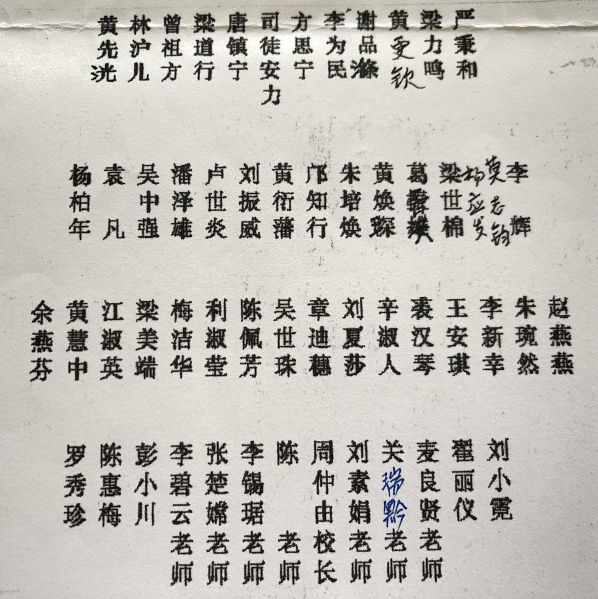 黄先洸
林沪儿
曾祖方
梁道行
唐镇宁
司徒安力
方思宁
李为民
谢品涤
黄更钦
梁力鸣
严秉和
杨柏年
袁凡
吴中强
潘泽雄
卢世炎
刘振威
黄衍藩
邝知行
朱培焕
黄焕琛
葛
梁世棉
杨应
莫志
李辉
余燕芬
黄慧中
江淑英
梁美端
梅洁华
利淑莹
陈佩芳
吴世珠
章迪穗
刘夏莎
辛淑人
裘汉琴
王安琪
李新幸
朱琬然
赵燕燕
罗秀珍
陈惠梅
彭小川
李碧云老师
张楚嫦老师
李锡琚老师
陈老师
周仲由校长
刘素娟老师
关瑞黔老师
麦良贤老师
翟丽仪
刘小霓